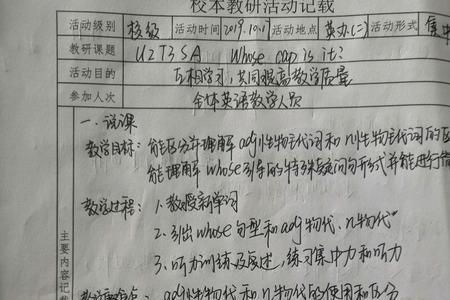 校本教研活动记载
活动级别 校级 活动时间 2019.10.17 活动地点 英办(二) 活动形式 集中
教研课题 U2T3SA Whose cap is it?
活动目的 互相学习,共同提高教学质量
参加人次 全体英语教学人员
一.说课
教学目标: 能区分并理解adj性物主代词和n性物主代词的区
能理解whose引导的特殊疑问句形式并能进行
教学过程: 1.教授新单词
2.引出whose句型和adj物代、n物代
3.听力训练及复述,练习集中力和听力
主要内容记
adj性物代和n物代的使用和区分